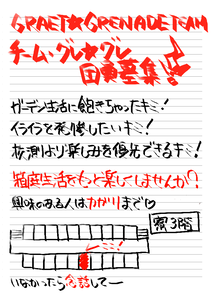 GRAET★GRENADE TEAM
チーム・グレ★グレ
団員募集!
ガーデン生活に飽きちゃったキミ!
イライラを発散したいキミ!
規則より楽しみを優先できるキミ!
箱庭生活をもっと楽しくしませんか?
興味のある人はカガリまで
寮3階
ココ!
いなかったら会話してー